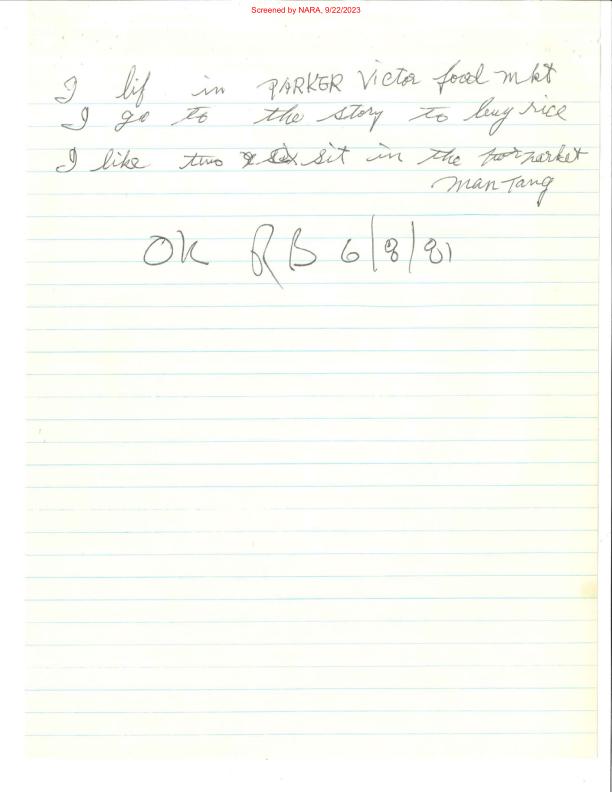 Screened by NARA, 9/22/2023
I lif in PARKER Victor food mkt
I go to the story to buy rice
I like two sit in the market
Man Tang
OK RB 6/8/81